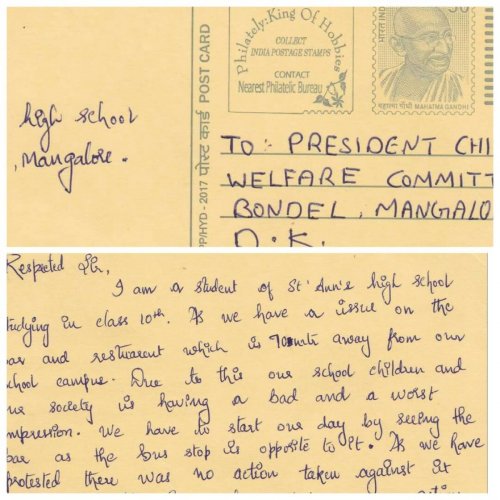 Philately: King Of Hobbies
COLLECT
INDIA POSTAGE STAMPS
CONTACT
Nearest Philatelic Bureau
भारत INDIA
महात्मा गांधी MAHATMA GANDHI
PP/HYD - 2017 पोस्ट कार्ड POST CARD
high school
Mangalore.
TO :- PRESIDENT CHI
WELFARE COMMITT
BONDEL, MANGALO
D.K.
Respected Sir,
I am a student of St Ann's high school
tudying in class 10th. As we have a issue on the
bar and restuarent which is 70mtr away from our
chool campus. Due to this our school children and
our society is having a bad and a worst
impression. We have to start our day by seeing the
bar as the bus stop is opposite to it. As we have
protested there was no action taken against it